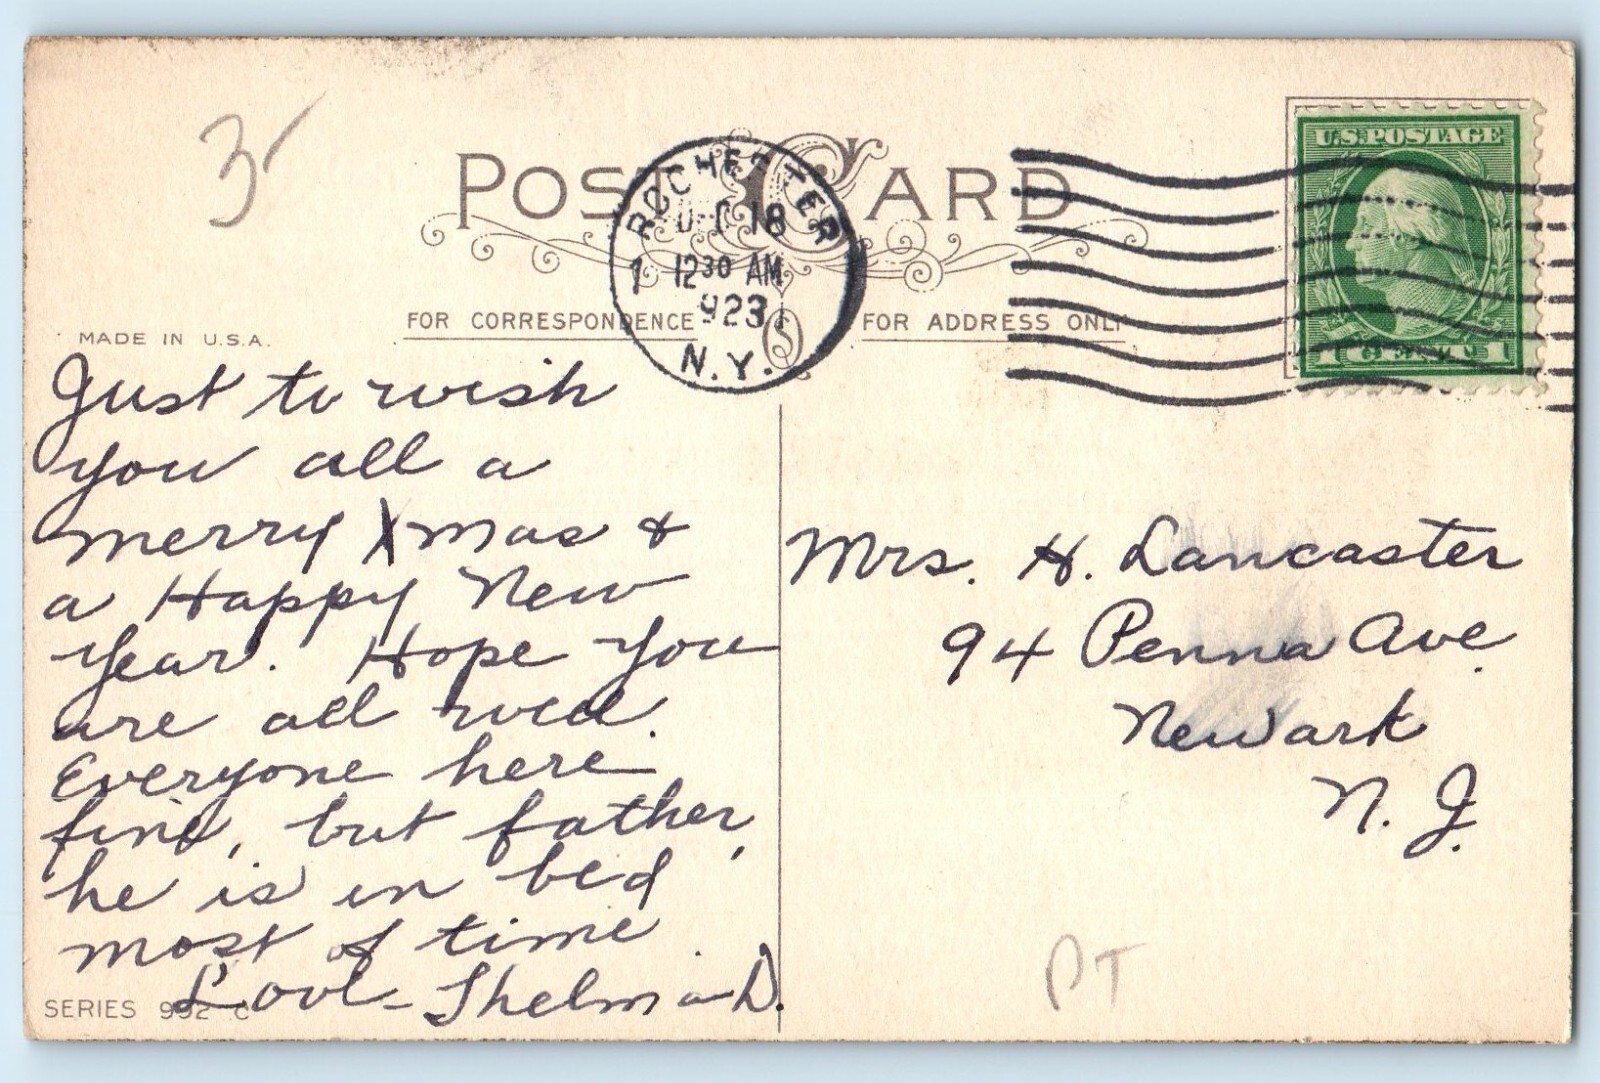 3-
POST CARD
ROCHESTER
DEC 18
1 12 30 AM
923
N.Y.
U.S. POSTAGE
1 CENT 1
MADE IN U.S.A.
FOR CORRESPONDENCE
FOR ADDRESS ONLY
Just to wish
you all a
merry Xmas &
a Happy New
Year. Hope you
are all well.
Everyone here
fine, but father,
he is in bed
most of time.
Love - Thelma D.
SERIES 992 C
Mrs. H. Lancaster
94 Penna Ave.
Newark
N. J.
PT